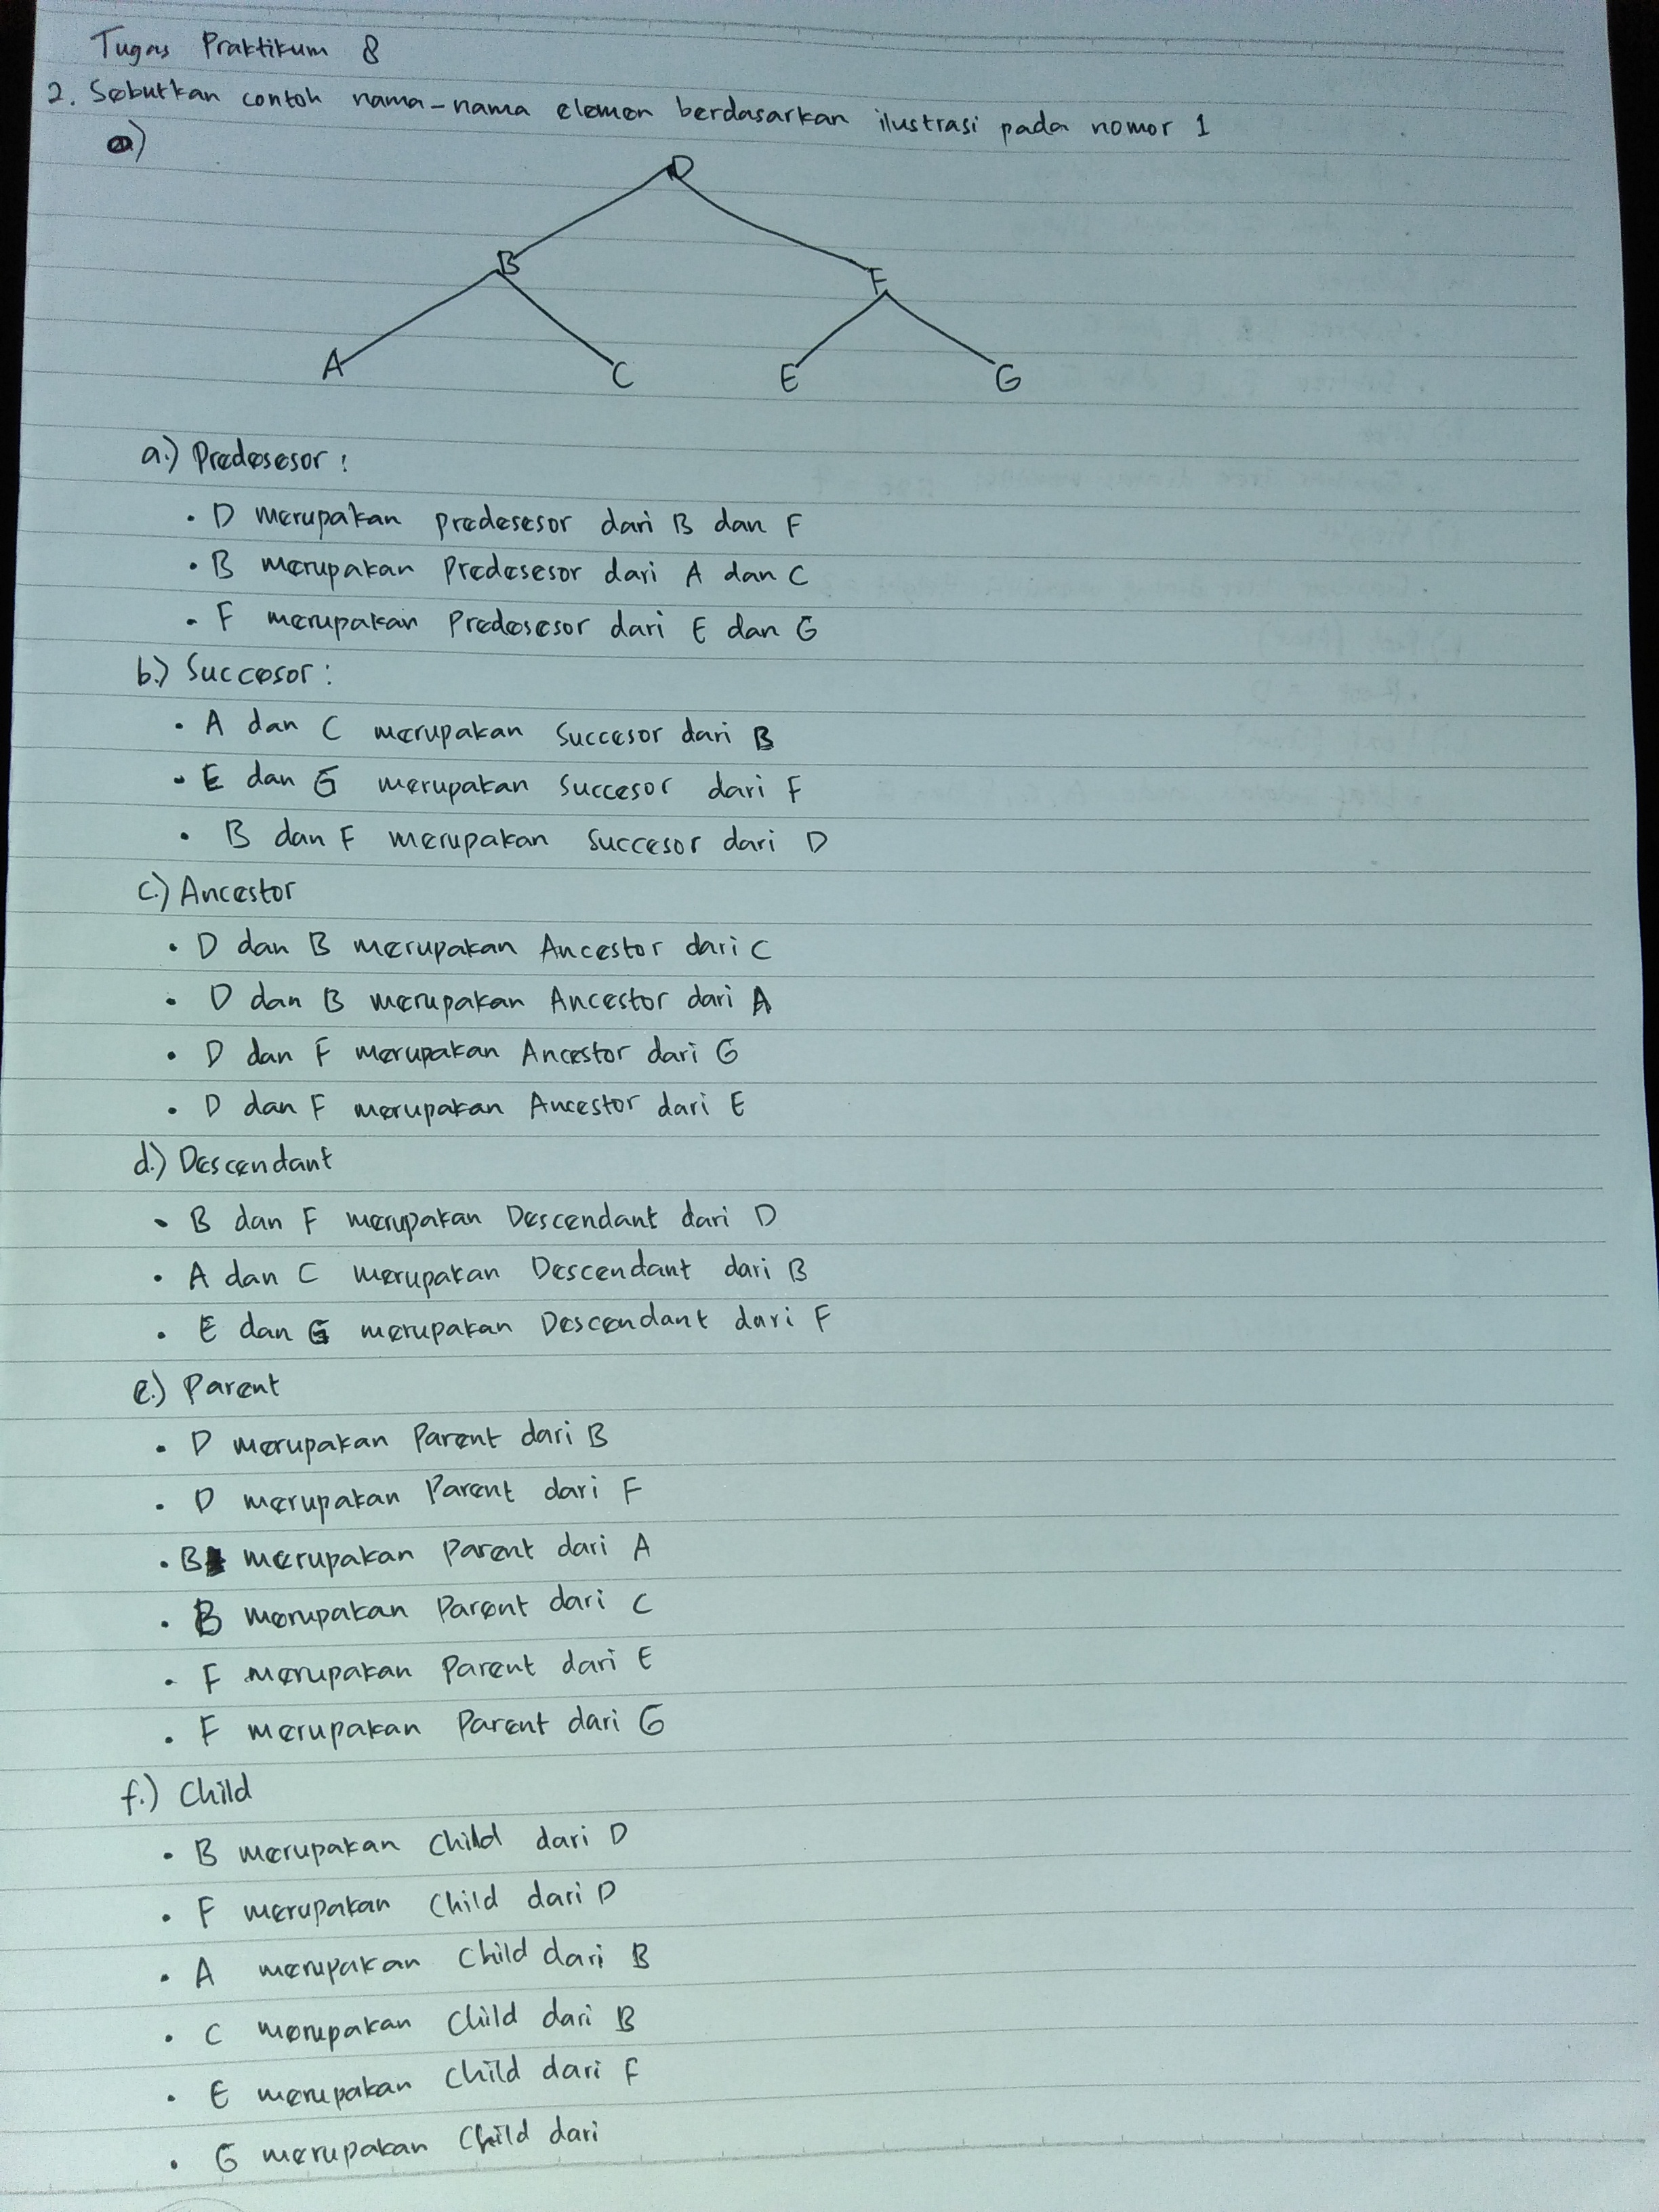 Tugas Praktikum 8
2. Sebutkan contoh nama-nama elemen berdasarkan ilustrasi pada nomor 1
a)
D
B F
A C E G
a.) Predesesor :
• D merupakan predesesor dari B dan F
• B merupakan Predesesor dari A dan C
• F merupakan Predesesor dari E dan G
b.) Succesor :
• A dan C merupakan Succesor dari B
• E dan G merupakan Succesor dari F
• B dan F merupakan Succesor dari D
c.) Ancestor
• D dan B merupakan Ancestor dari C
• D dan B merupakan Ancestor dari A
• D dan F merupakan Ancestor dari G
• D dan F merupakan Ancestor dari E
d.) Descendant
• B dan F merupakan Descendant dari D
• A dan C merupakan Descendant dari B
• E dan G merupakan Descendant dari F
e.) Parent
• D merupakan Parent dari B
• D merupakan Parent dari F
• B merupakan Parent dari A
• B merupakan Parent dari C
• F merupakan Parent dari E
• F merupakan Parent dari G
f.) Child
• B merupakan Child dari D
• F merupakan Child dari D
• A merupakan Child dari B
• C merupakan Child dari B
• E merupakan Child dari F
• G merupakan Child dari